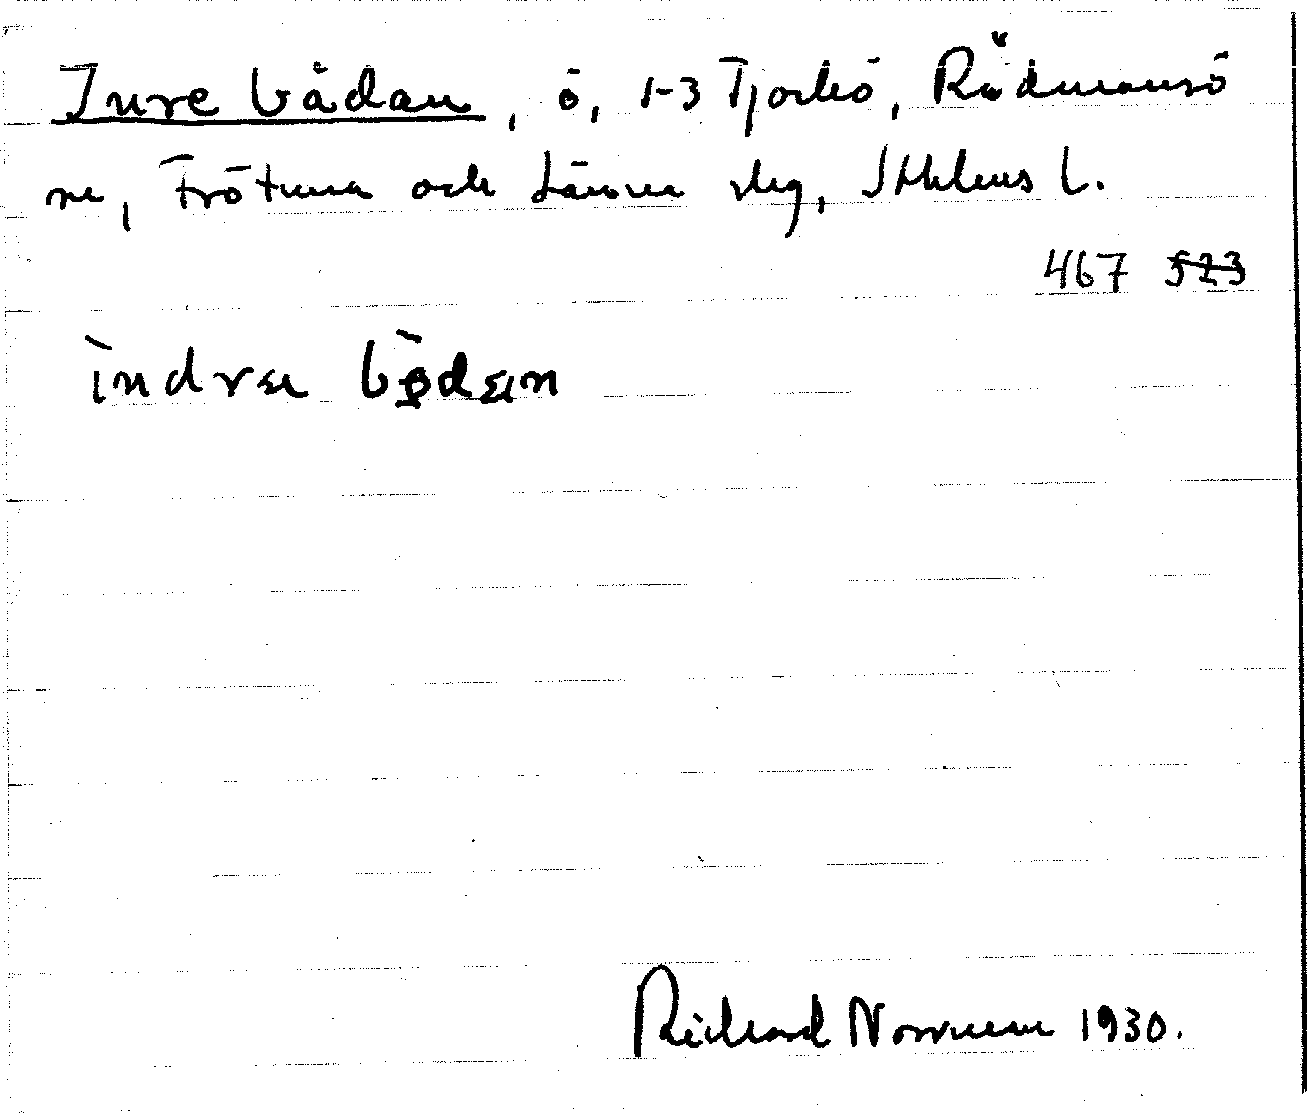 Inre bådan, ö, 1-3 Tjockö, Rådmansö
sn, Frötuna och Länna skg, Sthlms l.
467 523
ìndrɛ bòdɛn
Richard Norrman 1930.